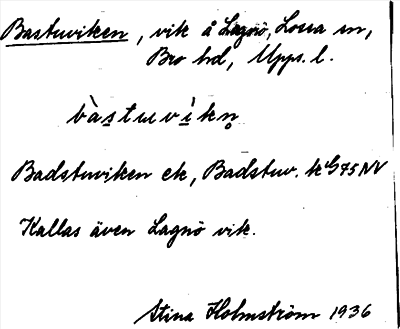 Bastuviken, vik å Lagnö, Lossa sn,
Bro hd, Upps. l.
bàstuvìkn̥
Badstuviken ek, Badstuv. k G75NV
Kallas även Lagnö vik.
Stina Holmström 1936